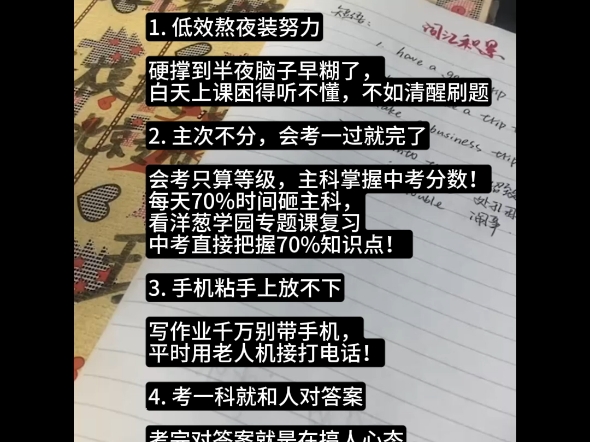 1. 低效熬夜装努力
硬撑到半夜脑子早糊了，
白天上课困得听不懂，不如清醒刷题
2. 主次不分，会考一过就完了
会考只算等级，主科掌握中考分数！
每天70%时间砸主科，
看洋葱学园专题课复习
中考直接把握70%知识点！
3. 手机粘手上放不下
写作业千万别带手机，
平时用老人机接打电话！
4. 考一科就和人对答案
考完对答案就是在搞人心态
短语：
词汇积累
1. have a
trip
business trip